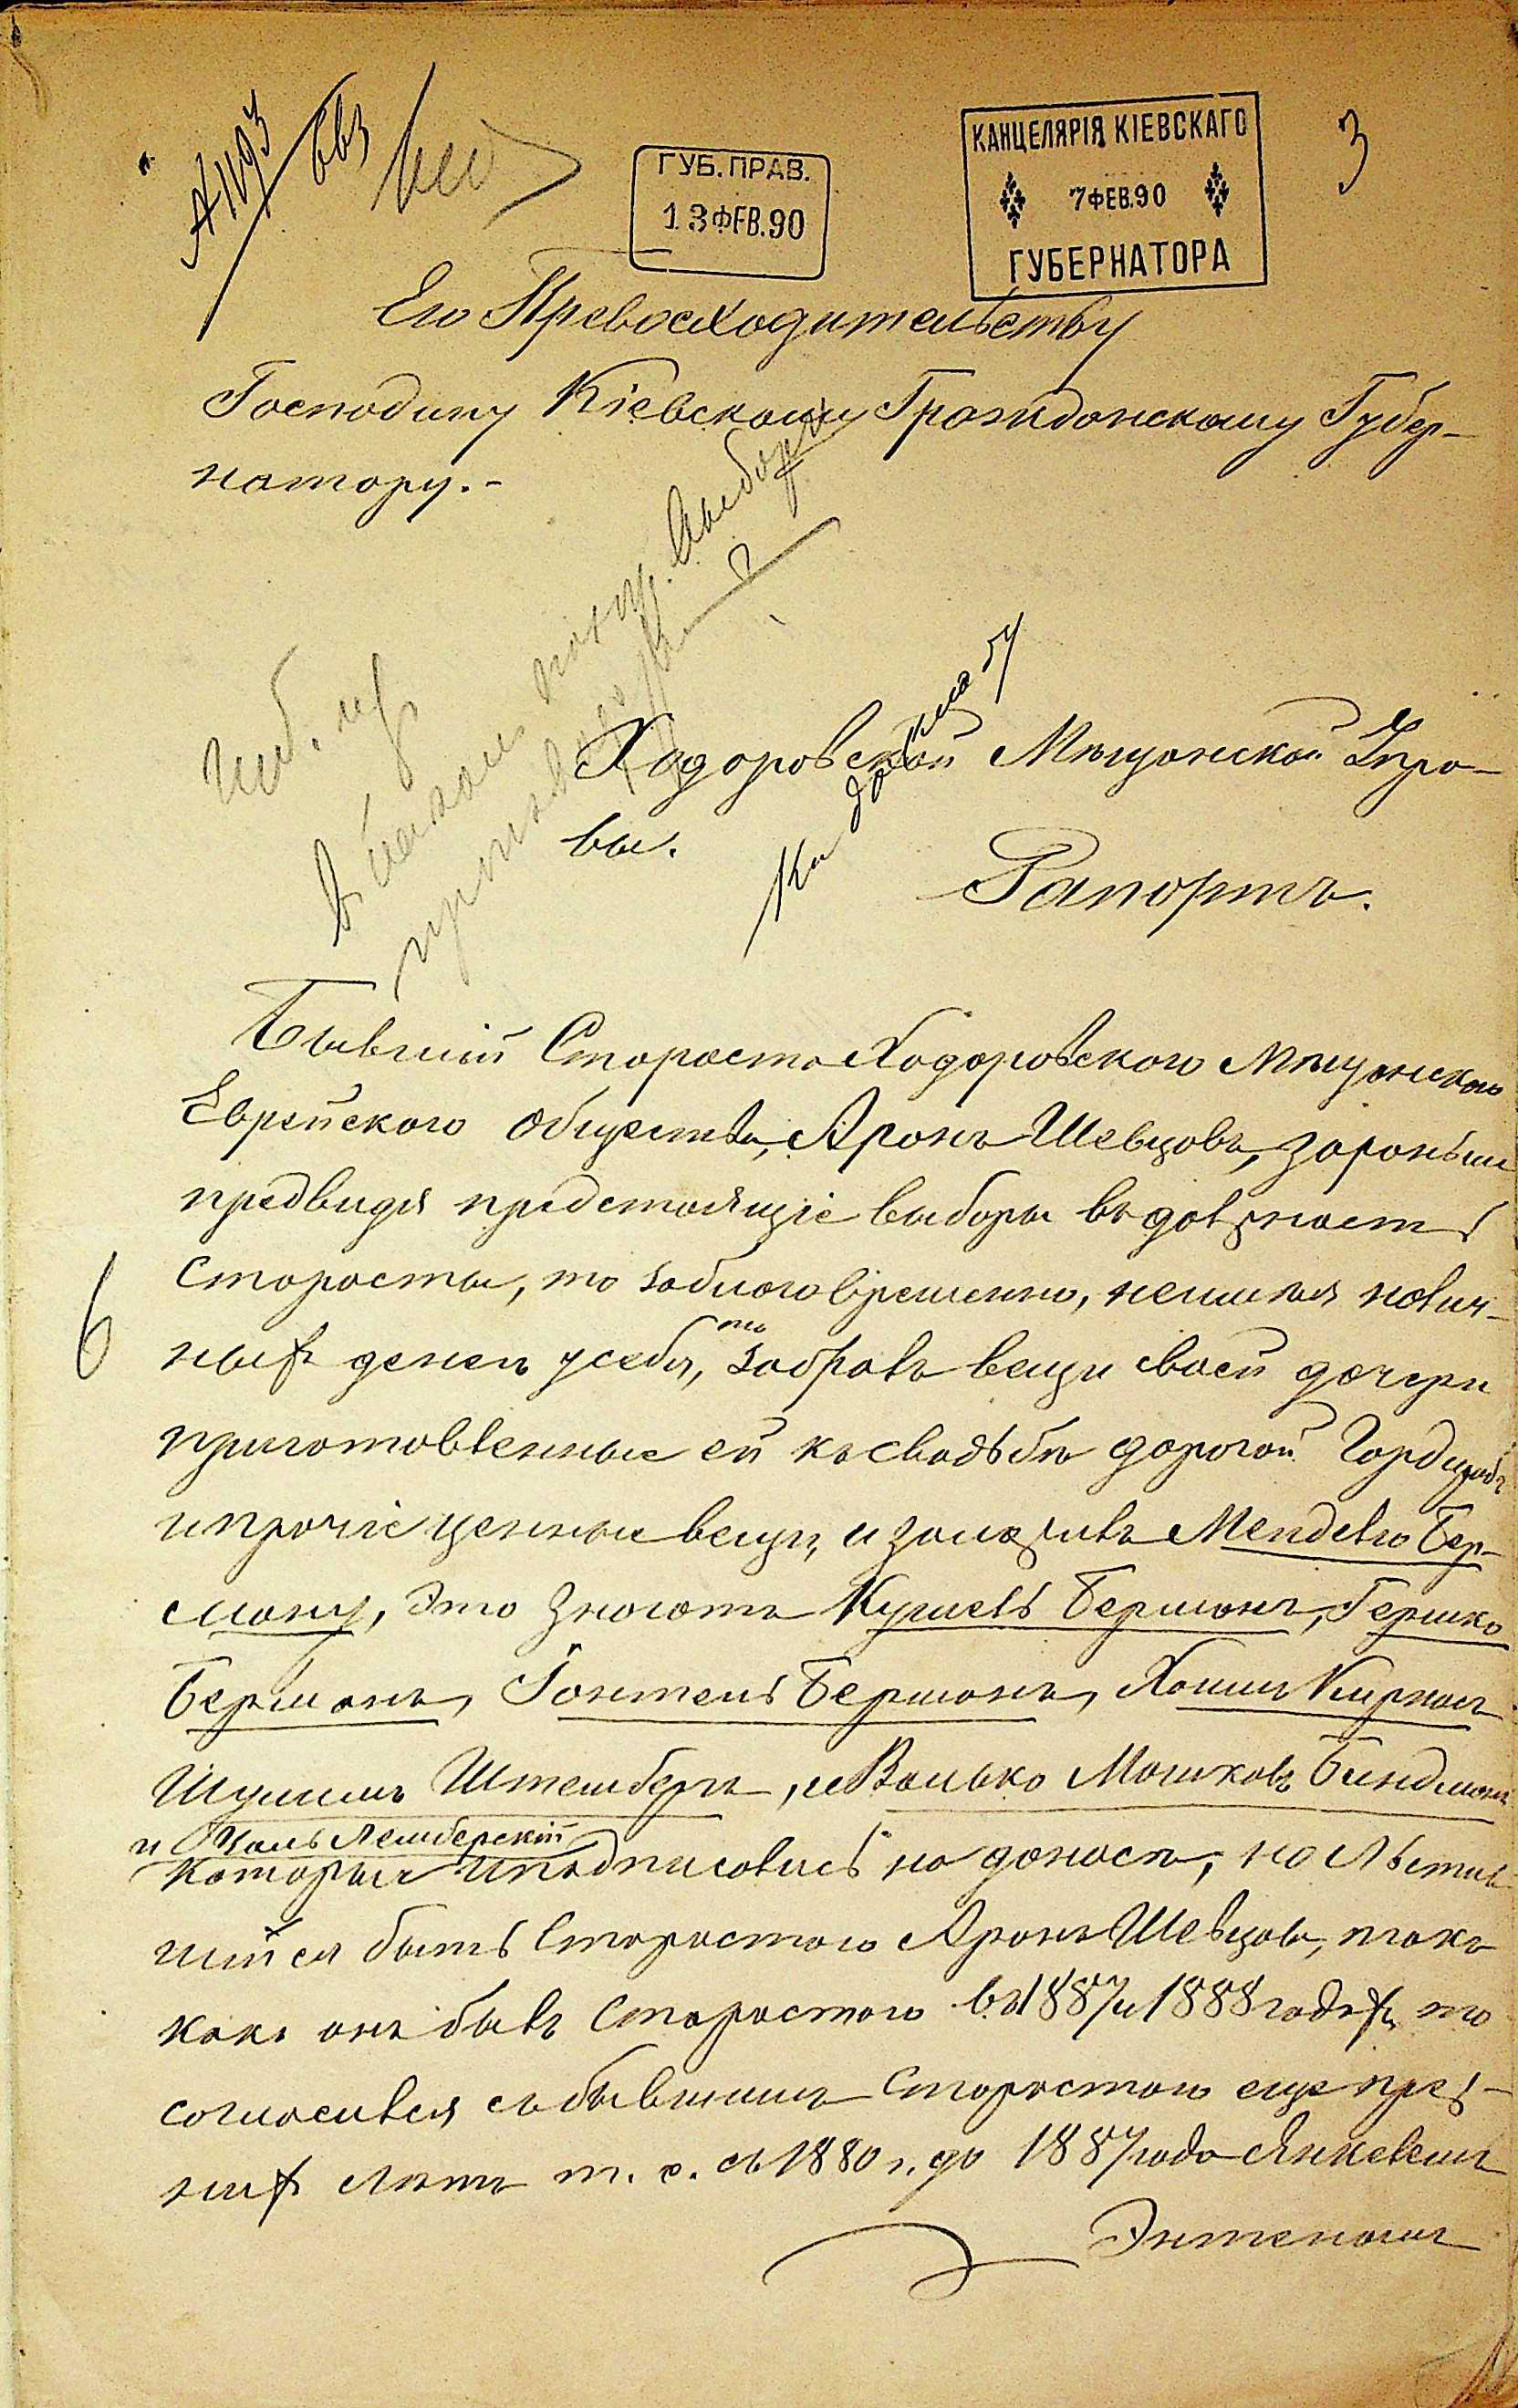 А 1193
663
ГУБ. ПРАВ.
13 ФЕВ. 90
КАНЦЕЛЯРІЯ КІЕВСКАГО
7 ФЕВ. 90
ГУБЕРНАТОРА
3
Его Превосходительству
Господину Кіевскому Гражданскому Губер-
натору.-
Ходоровской Мѣщанской Упра-
вы.
Рапортъ.
Бывшій Староста Ходоровского Мѣщанского
Еврейского Общества, Аронъ Шевцовъ, зараньше
предвидя предстоящіе выборы въ должность
Старосты, то заблаговременно, неимѣя налич-
ныхъ денегъ усебя, то забравъ вещи своей дочери
приготовленные ей къ свадьбѣ дорогой Гардиробъ
и прочіе ценные вещи, и заложивъ Менделю Бер-
ману, Это знають Кушель Берманъ, Гершко
Берманъ, Гонтель Берманъ, Хаимъ Кирнасъ
Шулимъ Штемберъ, и Волько Мошковъ Биндманъ
и Чаль Лемберскій
которые и подписались на доносъ, но льстив-
шійся быть Старостою Аронъ Шевцовъ, такъ
какъ онъ былъ Старостою въ 1887 и 1888 годахъ то
согласился съ бывшимъ Старостою еще преж-
нихъ лѣтъ т. е. съ 1880 г. до 1887 года Янкелемъ
Энтеномъ